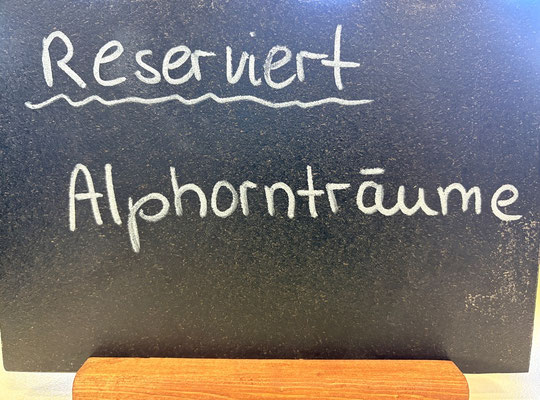 Reserviert
Alphornträume